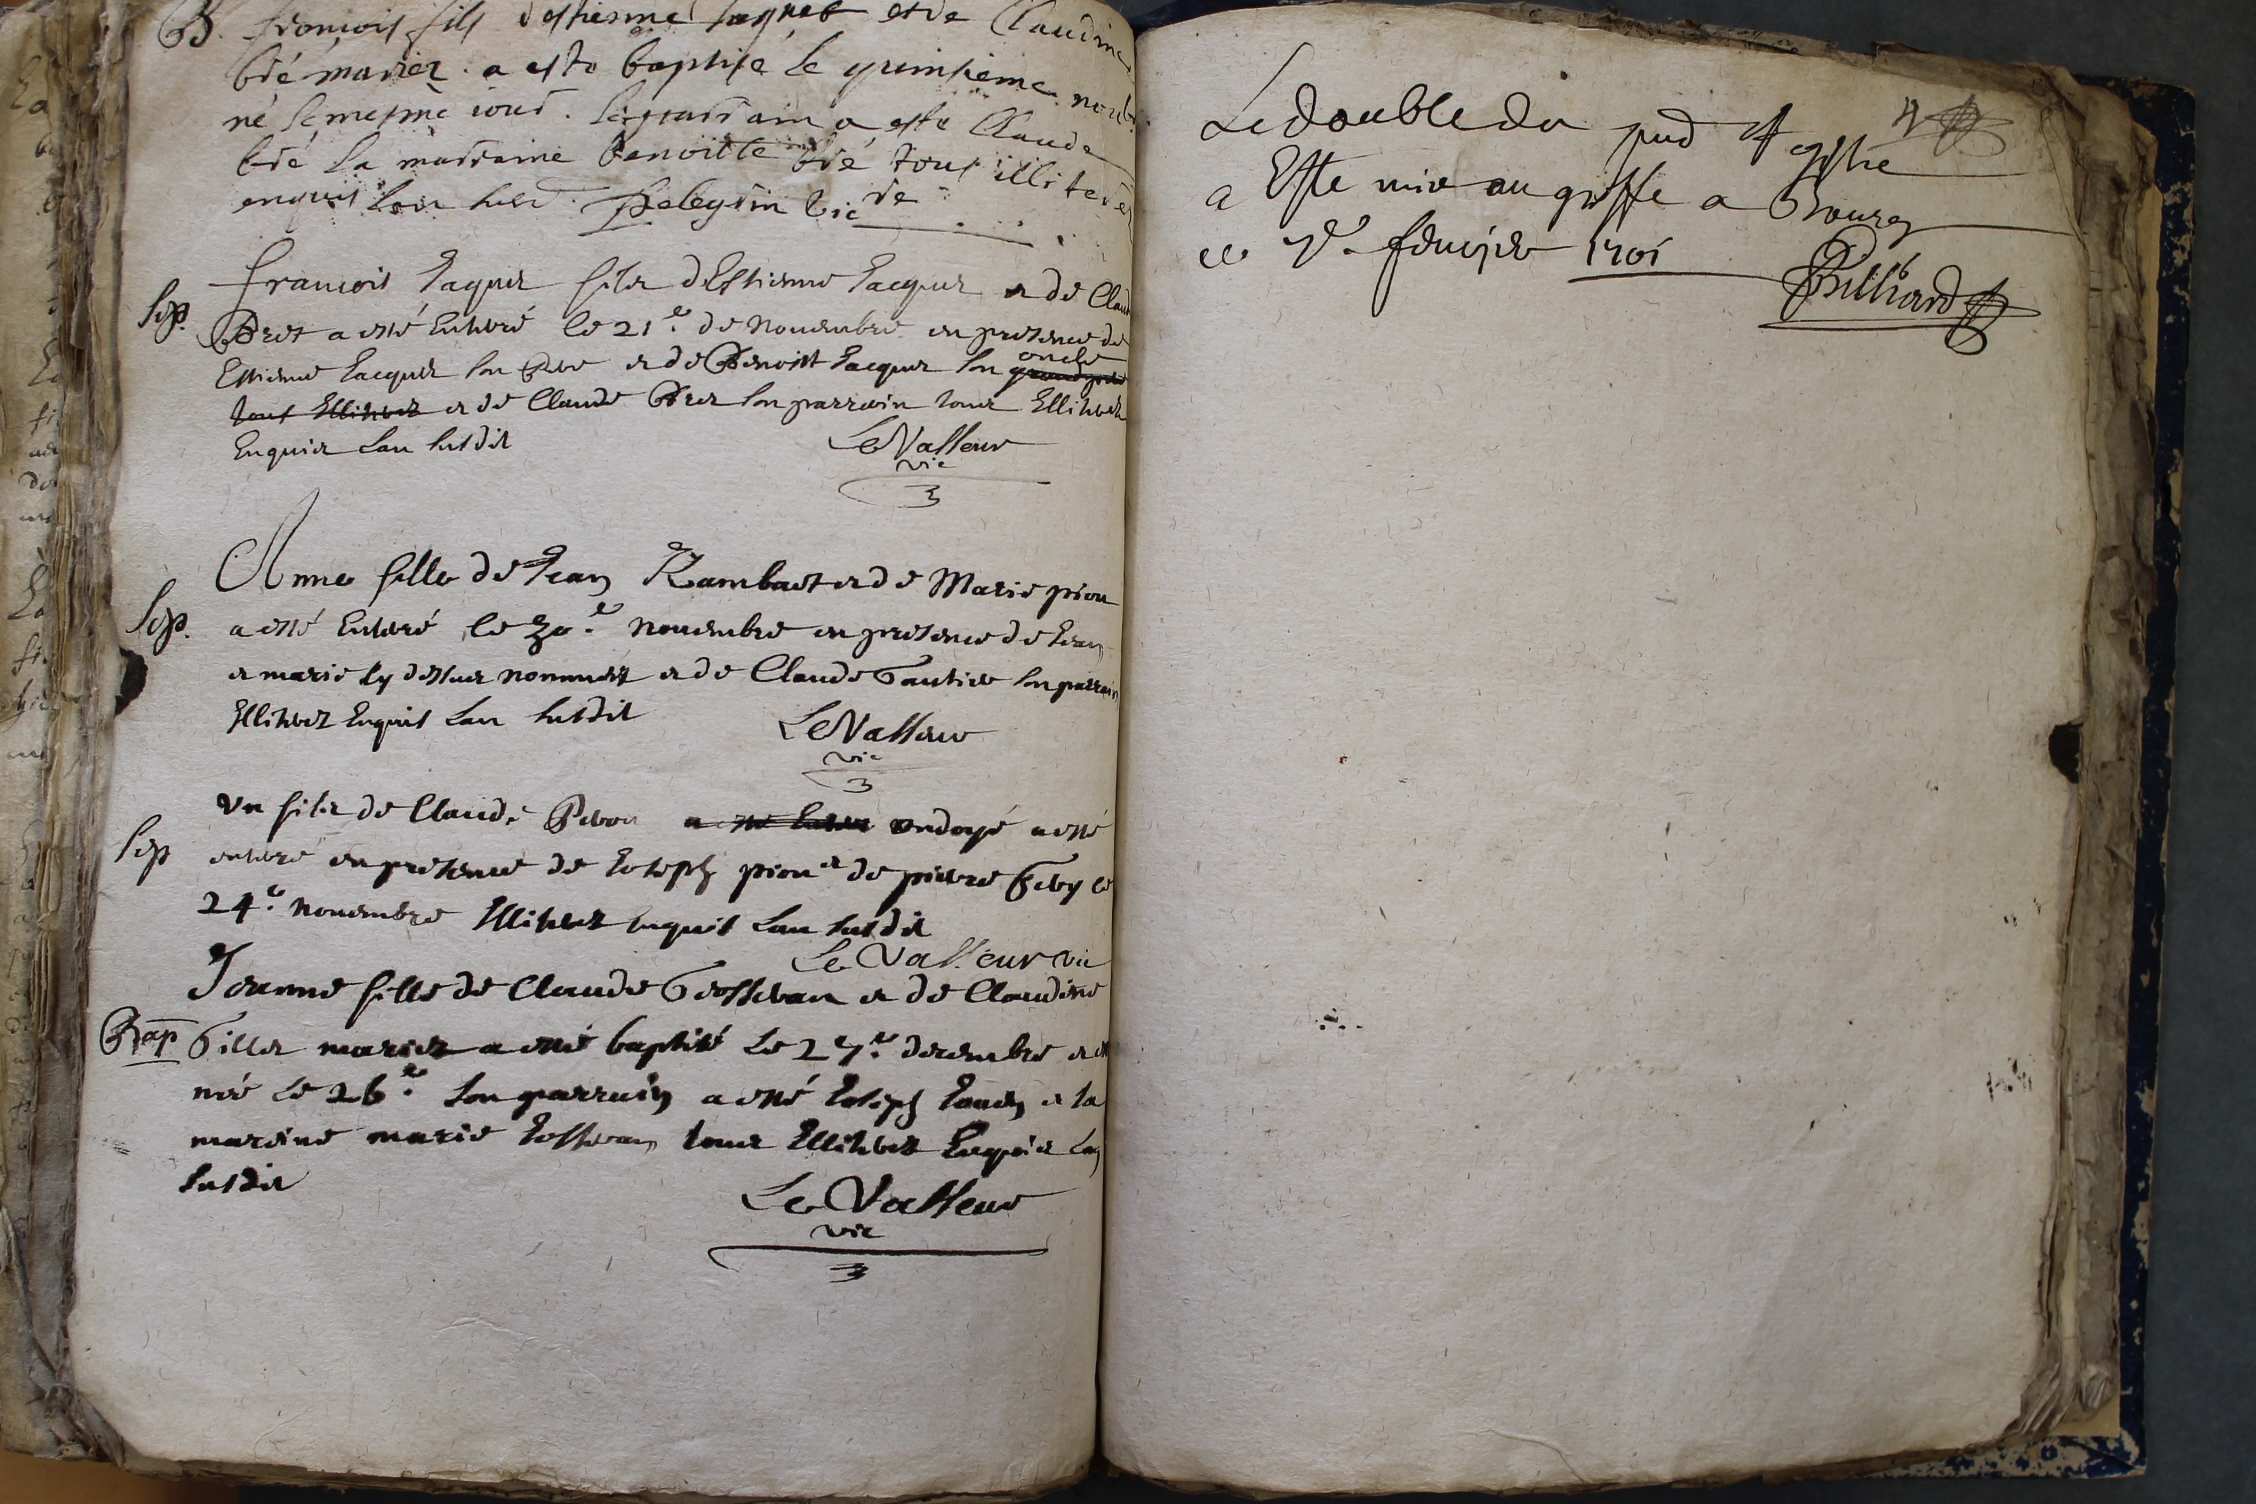 B. francois fils destienne Jaquet et de Claudine
bré mariez a esté baptisé le quinsieme nobre
né le mesme jour. le parrain a esté Claude
bré la marraine benoitte bré tous illiterez
enquis l'an susd. Peleydin vic re
Sep. francois Jaquet filz destienne Jacquet et de Claud
Bret a esté enterré le 21e. de Novembre en presence de
Estienne Jacquet son pere et de Benoist Jacquet son oncle
et de Claude Bret son parrain tous Illiterez
Enquis l'an susdit Le Vasseur
vic
Anne fille de Jean Rambaet et de Marie pion
Sep. a esté enterré le 30e. Novembre en presence de Jean
et marie sy dessus nommez et de Claude Gautier son parrain
Illiterez enquis lan susdit Le Vasseur
vic
Un filz de Claude ondoyé a esté
Sep enterré en presence de Joseph pion et de pierre le
24e. Novembre Illiterez enquis lan susdit
Le Vasseur vic
Jeanne fille de Claude et de Claudine
Bap Gillet mariez a esté baptisé le 27e. decembre et
née le 26e. son parrain a esté Joseph et la
mareine marie tous Illiterez Enquis lan
susdit
Le Vasseur
vic
4
Le double du pnt Registre
a Este mis au greffe a Bourg
ce 7e. fevrier 1701
Billiard